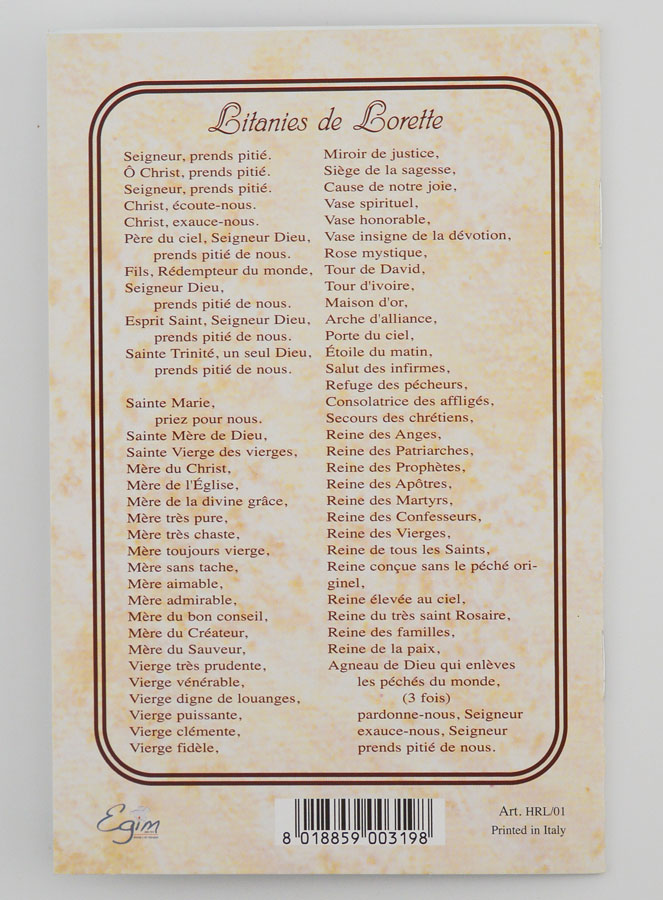 Litanies de Lorette
Seigneur, prends pitié.
Ô Christ, prends pitié.
Seigneur, prends pitié.
Christ, écoute-nous.
Christ, exauce-nous.
Père du ciel, Seigneur Dieu,
prends pitié de nous.
Fils, Rédempteur du monde,
Seigneur Dieu,
prends pitié de nous.
Esprit Saint, Seigneur Dieu,
prends pitié de nous.
Sainte Trinité, un seul Dieu,
prends pitié de nous.
Sainte Marie,
priez pour nous.
Sainte Mère de Dieu,
Sainte Vierge des vierges,
Mère du Christ,
Mère de l'Église,
Mère de la divine grâce,
Mère très pure,
Mère très chaste,
Mère toujours vierge,
Mère sans tache,
Mère aimable,
Mère admirable,
Mère du bon conseil,
Mère du Créateur,
Mère du Sauveur,
Vierge très prudente,
Vierge vénérable,
Vierge digne de louanges,
Vierge puissante,
Vierge clémente,
Vierge fidèle,
Miroir de justice,
Siège de la sagesse,
Cause de notre joie,
Vase spirituel,
Vase honorable,
Vase insigne de la dévotion,
Rose mystique,
Tour de David,
Tour d'ivoire,
Maison d'or,
Arche d'alliance,
Porte du ciel,
Étoile du matin,
Salut des infirmes,
Refuge des pécheurs,
Consolatrice des affligés,
Secours des chrétiens,
Reine des Anges,
Reine des Patriarches,
Reine des Prophètes,
Reine des Apôtres,
Reine des Martyrs,
Reine des Confesseurs,
Reine des Vierges,
Reine de tous les Saints,
Reine conçue sans le péché ori-
ginel,
Reine élevée au ciel,
Reine du très saint Rosaire,
Reine des familles,
Reine de la paix,
Agneau de Dieu qui enlèves
les péchés du monde,
(3 fois)
pardonne-nous, Seigneur
exauce-nous, Seigneur
prends pitié de nous.
Egim
8 018859 003198
Art. HRL/01
Printed in Italy